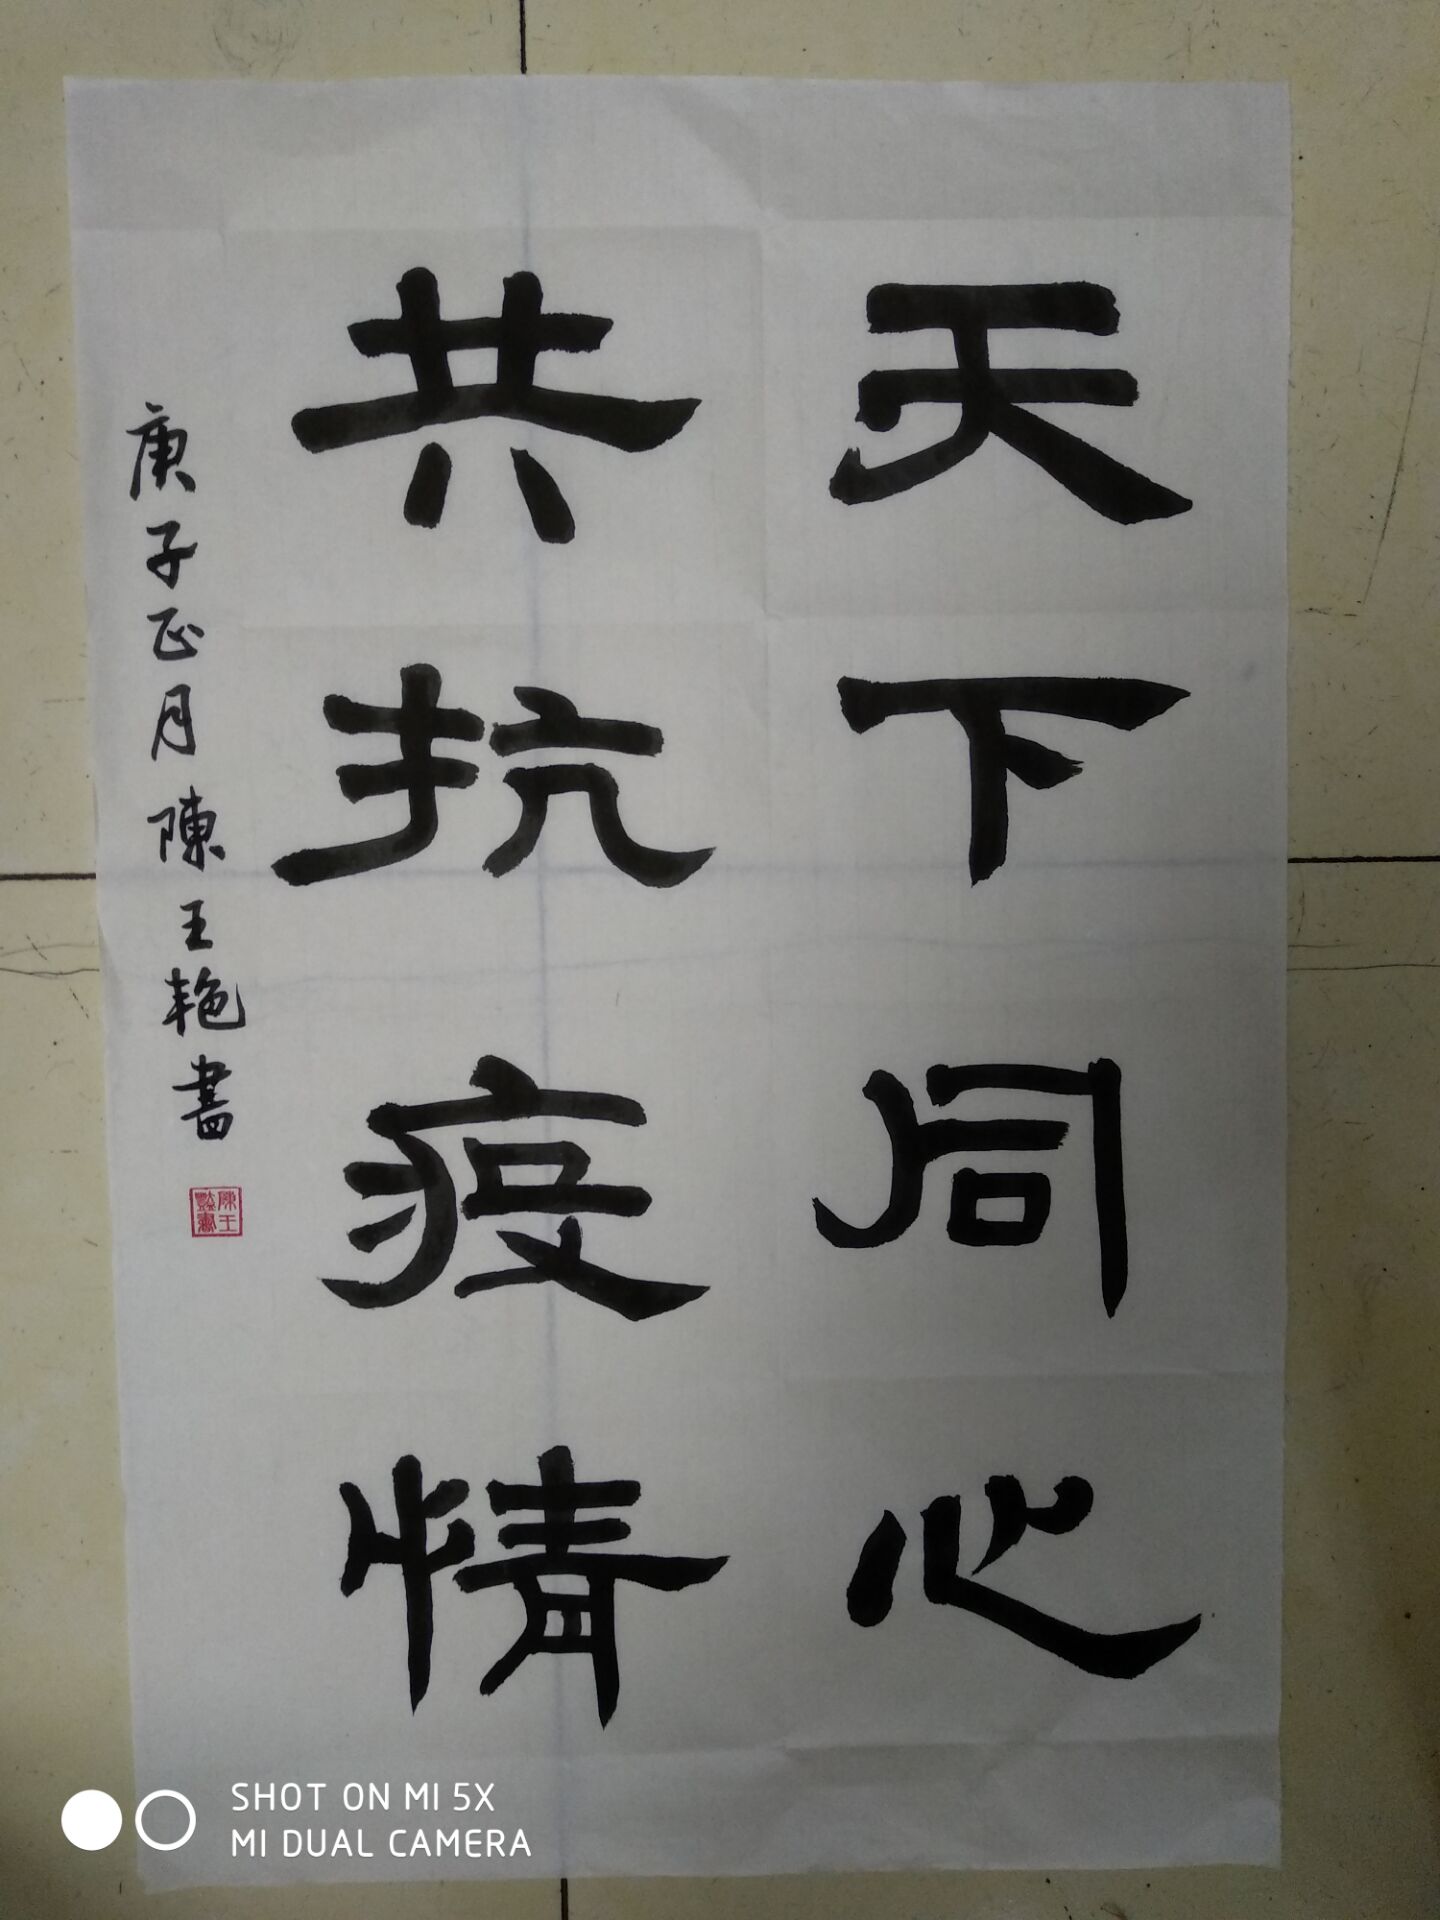 天下同心
共抗疫情
庚子正月陳王艳書
SHOT ON MI 5X
MI DUAL CAMERA